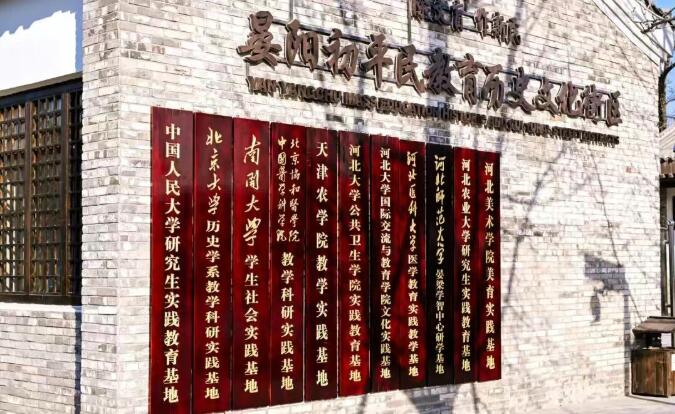 晏阳初平民教育历史文化街区
中国人民大学研究生实践教育基地
北京大学历史学系教学科研实践基地
南开大学学生社会实践基地
北京协和医学院
中国医学科学院
教学科研实践基地
天津农学院教学实践基地
河北大学公共卫生学院实践教育基地
河北大学国际交流与教育学院文化实践基地
河北医科大学医学教育实践教学基地
河北师范大学晏梁学智中心研学基地
河北农业大学研究生实践教育基地
河北美术学院美育实践基地